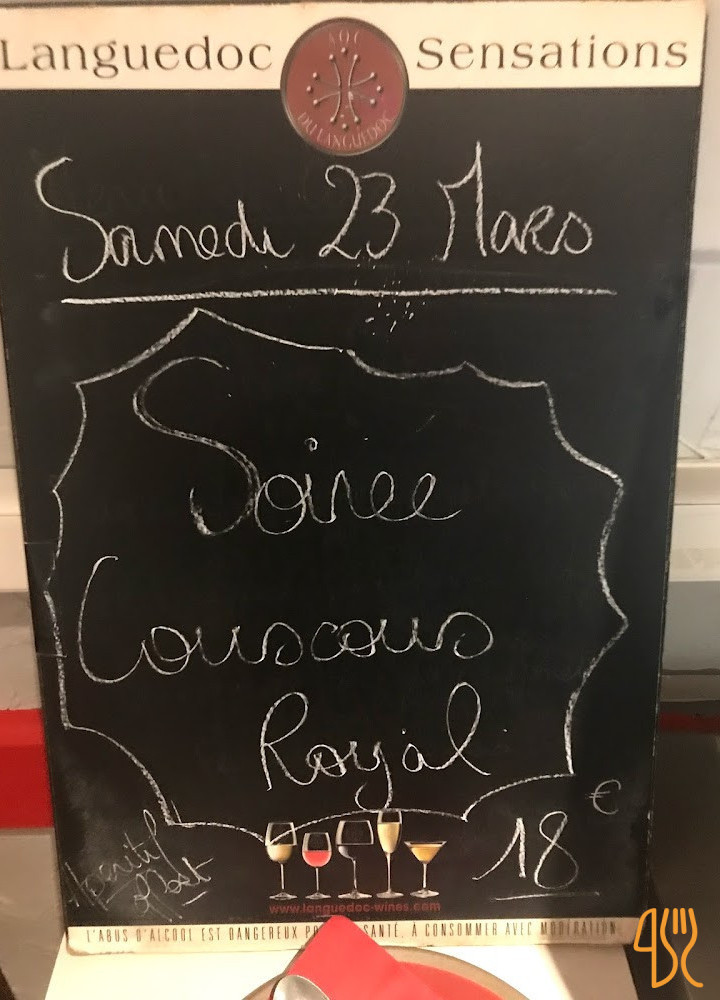 Languedoc Sensations
AOC
DU LANGUEDOC
Samedi 23 Mars
Soirée
Couscous
Royal
18 €
Apéritif
www.languedoc-wines.com
L'ABUS D'ALCOOL EST DANGEREUX SANTÉ, À CONSOMMER AVEC MODÉRATION